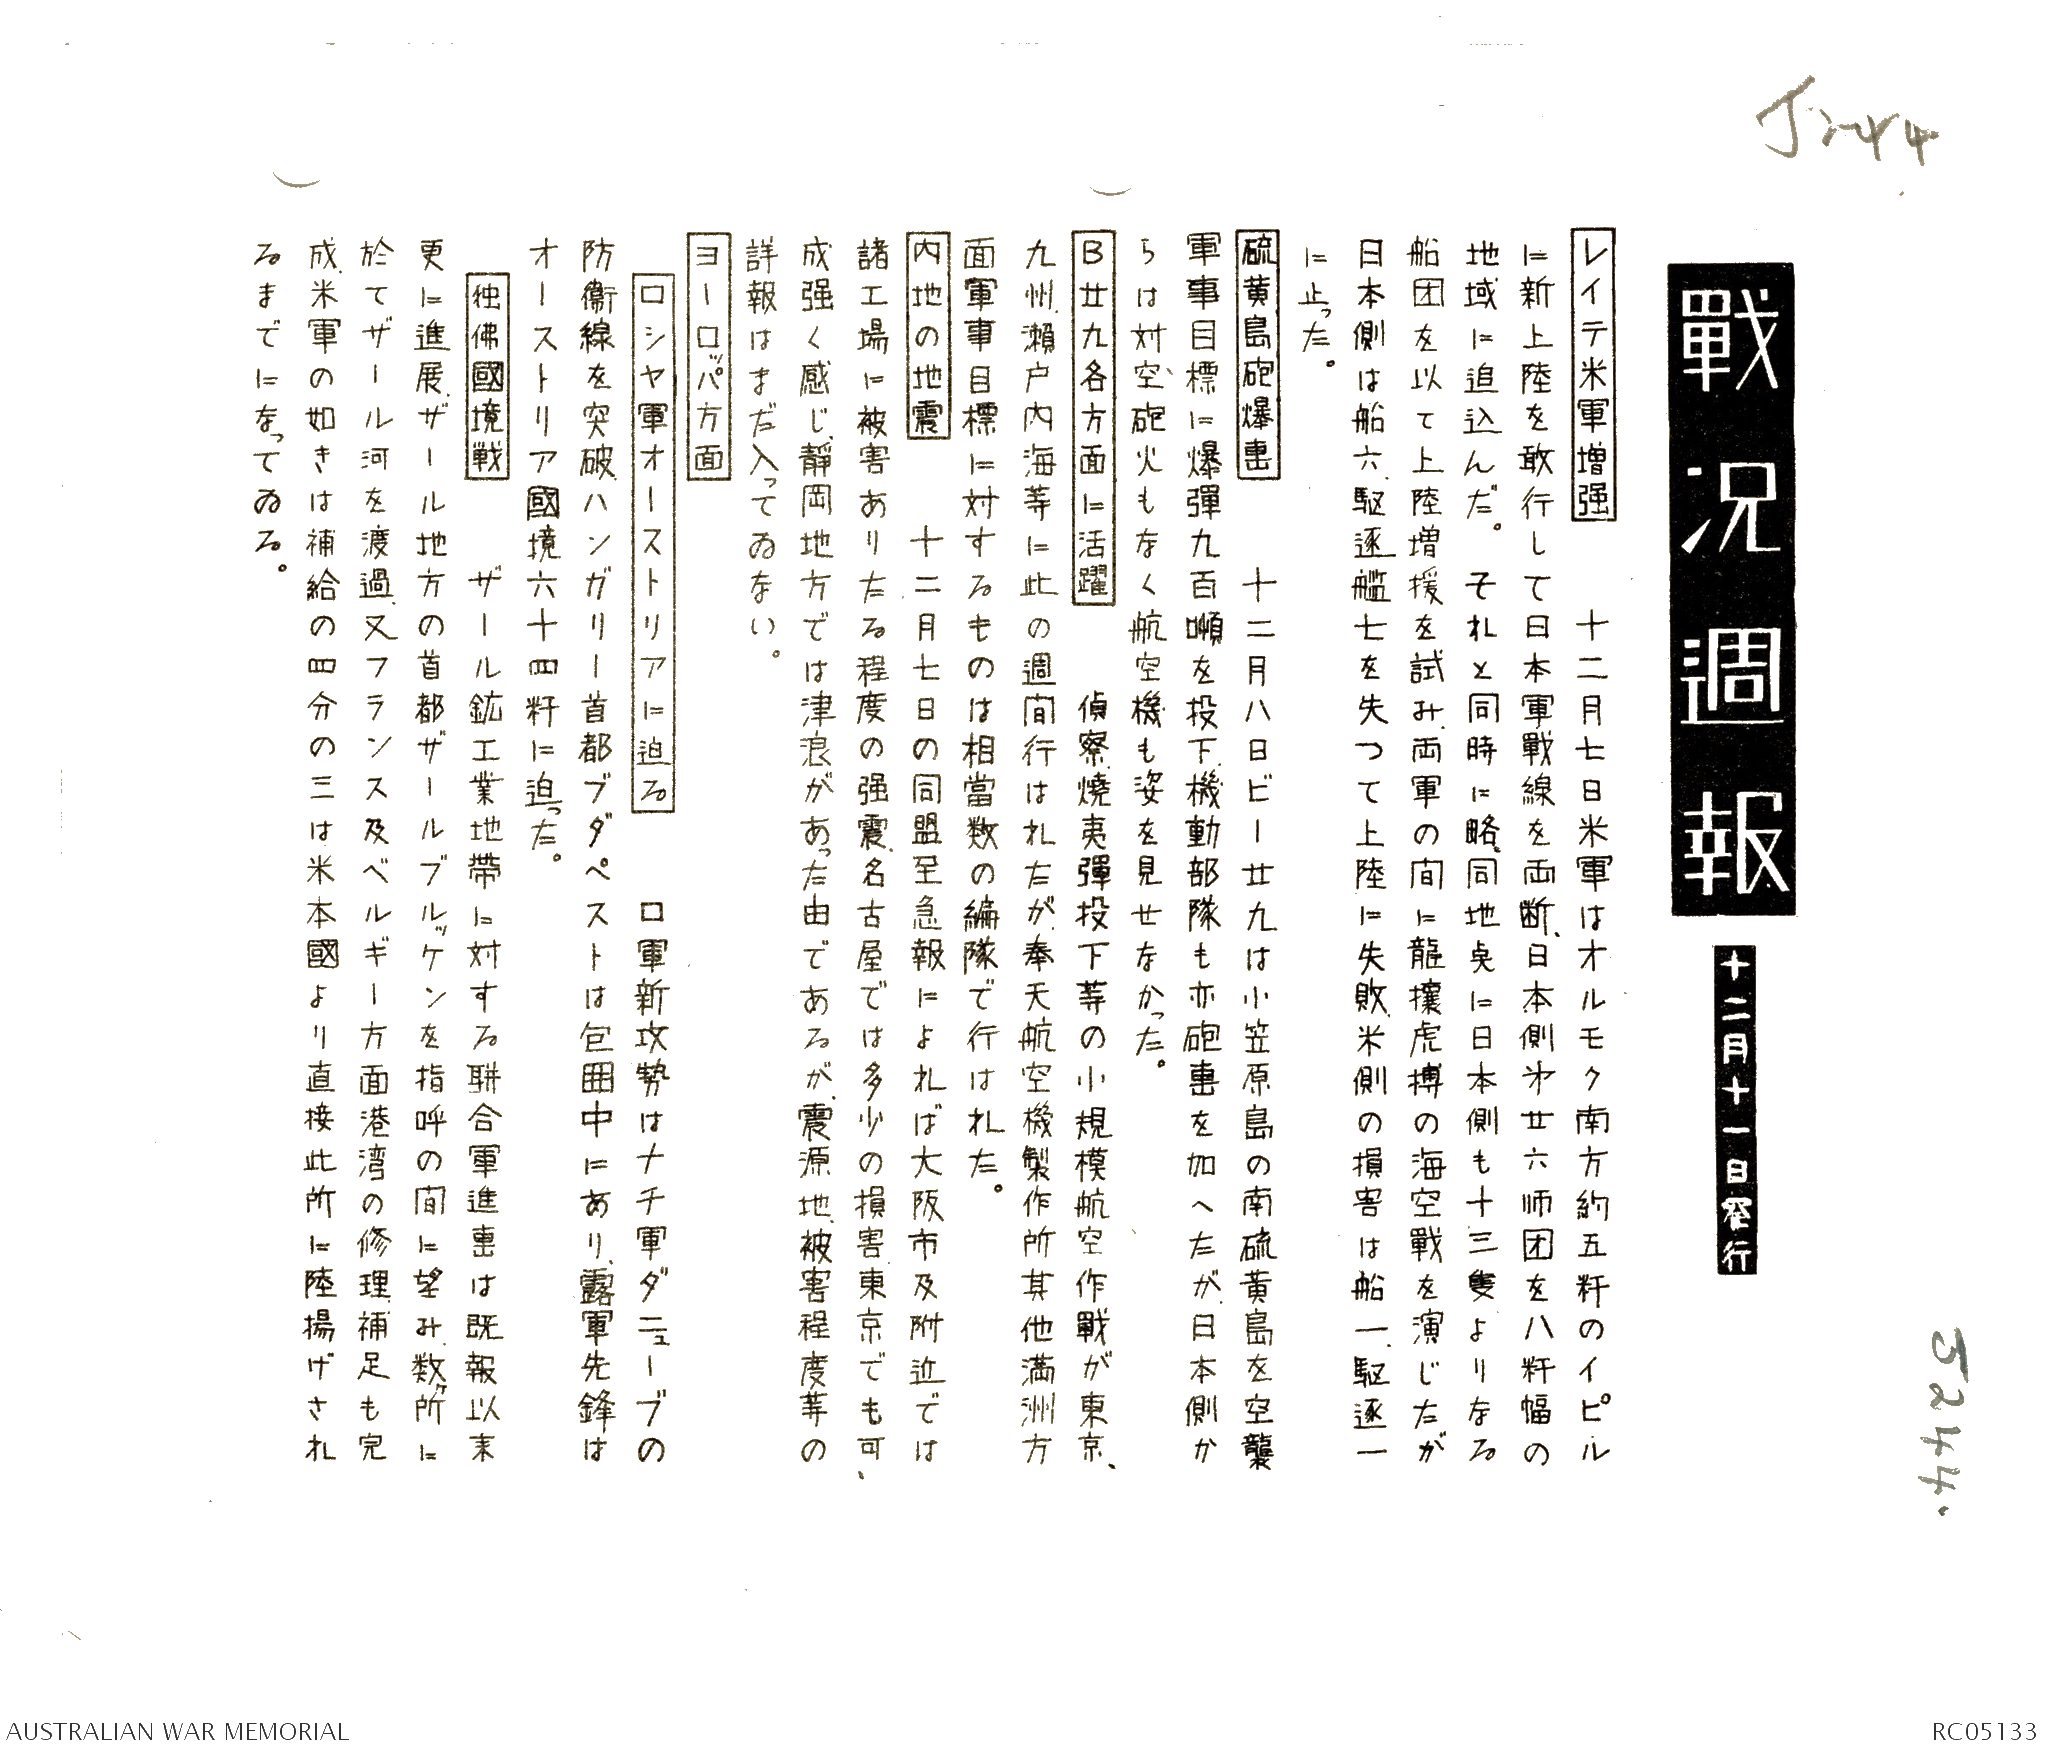 J244
戰況週報
十二月十一日発行
J244.
レイテ米軍増强 十二月七日米軍はオルモク南方約五粁のイピル
に新上陸を敢行して日本軍戰線を両断、日本側㐧廿六师団を八粁幅の
地域に追込んだ。それと同時に略、同地奌に日本側も十三隻よりなる
船団を以て上陸増援を試み、両軍の間に龍攘虎搏の海空戰を演じたが
日本側は船六、駆逐艦七を失つて上陸に失敗、米側の損害は船一、駆逐一
に止った。
硫黄島砲爆擊 十二月八日ビー廿九は小笠原島の南硫黄島を空襲
軍事目標に爆彈九百噸を投下、機動部隊も亦砲擊を加へたが、日本側か
らは対空砲火もなく航空機も姿を見せなかった。
B廿九各方面に活躍 偵察、燒夷彈投下等の小規模航空作戰が東京、
九州、瀬戸内海等に此の週間行はれたが、奉天航空機製作所其他満洲方
面軍事目標に対するものは相當数の編隊で行はれた。
内地の地震 十二月七日の同盟至急報によれば大阪市及附近では
諸工場に被害ありたる程度の强震、名古屋では多少の損害、東京でも可、
成强く感じ、靜岡地方では津浪があった由であるが、震源地、被害程度等の
詳報はまだ入ってゐない。
ヨーロッパ方面
ロシヤ軍オーストリアに迫る ロ軍新攻勢はナチ軍ダニューブの
防衞線を突破、ハンガリー首都ブダペストは包囲中にあり、露軍先鋒は
オーストリア國境六十四粁に迫った。
独佛國境戦 ザール鉱工業地帯に対する联合軍進擊は既報以来
更に進展、ザール地方の首都ザールブルッケンを指呼の間に望み、数ヶ所に
於てザール河を渡過、又フランス及ベルギー方面港湾の修理、補足も完
成、米軍の如きは補給の四分の三は米本國より直接此所に陸揚げされ
るまでになってゐる。
AUSTRALIAN WAR MEMORIAL
RC05133